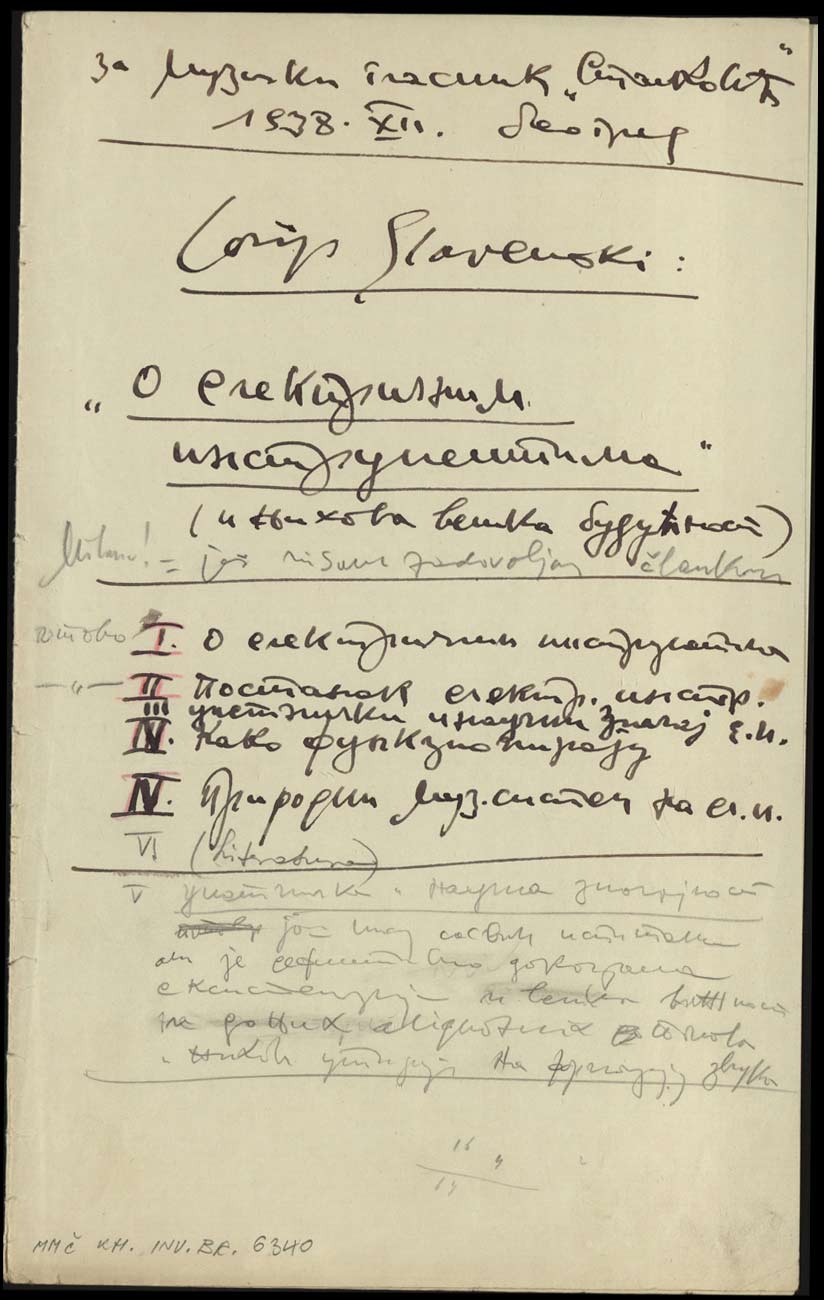 за Музички гласник „Станковић“
1938. XII. Београд
Josip Slavenski:
„О електричним
инструментима“
(и њихова велика будућност)
Milane! = još nisam zadovoljan člankom
готово I. О електричним инструментима
—„— II Постанак електр. инстр.
III уметнички и научни значај е.и.
IV. Како функционирају
IV. Природни муз. систем на ел. и.
VI (Literatura)
V уметничка и научна
још
али је дефинитивно доказана
егзистенција и велика важност
доњих аликвотних тонова
и њихов утицај на формацију звука
16 4
14
MMČ KH. INV. BR. 6340